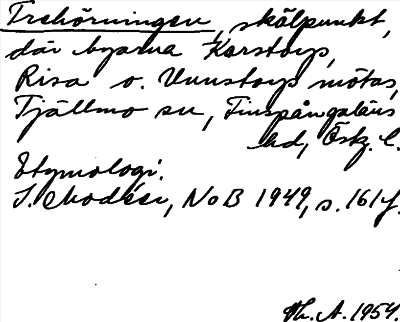 Trehörningen, skälpunkt,
där byarna Karstorp,
Risa o. Unnstorp mötas,
Tjällmo sn, Finspångaläns
hd, Östg. l.
Etymologi.
I. Modéer, NoB 1949, s. 161 f.
Th. A. 1954.